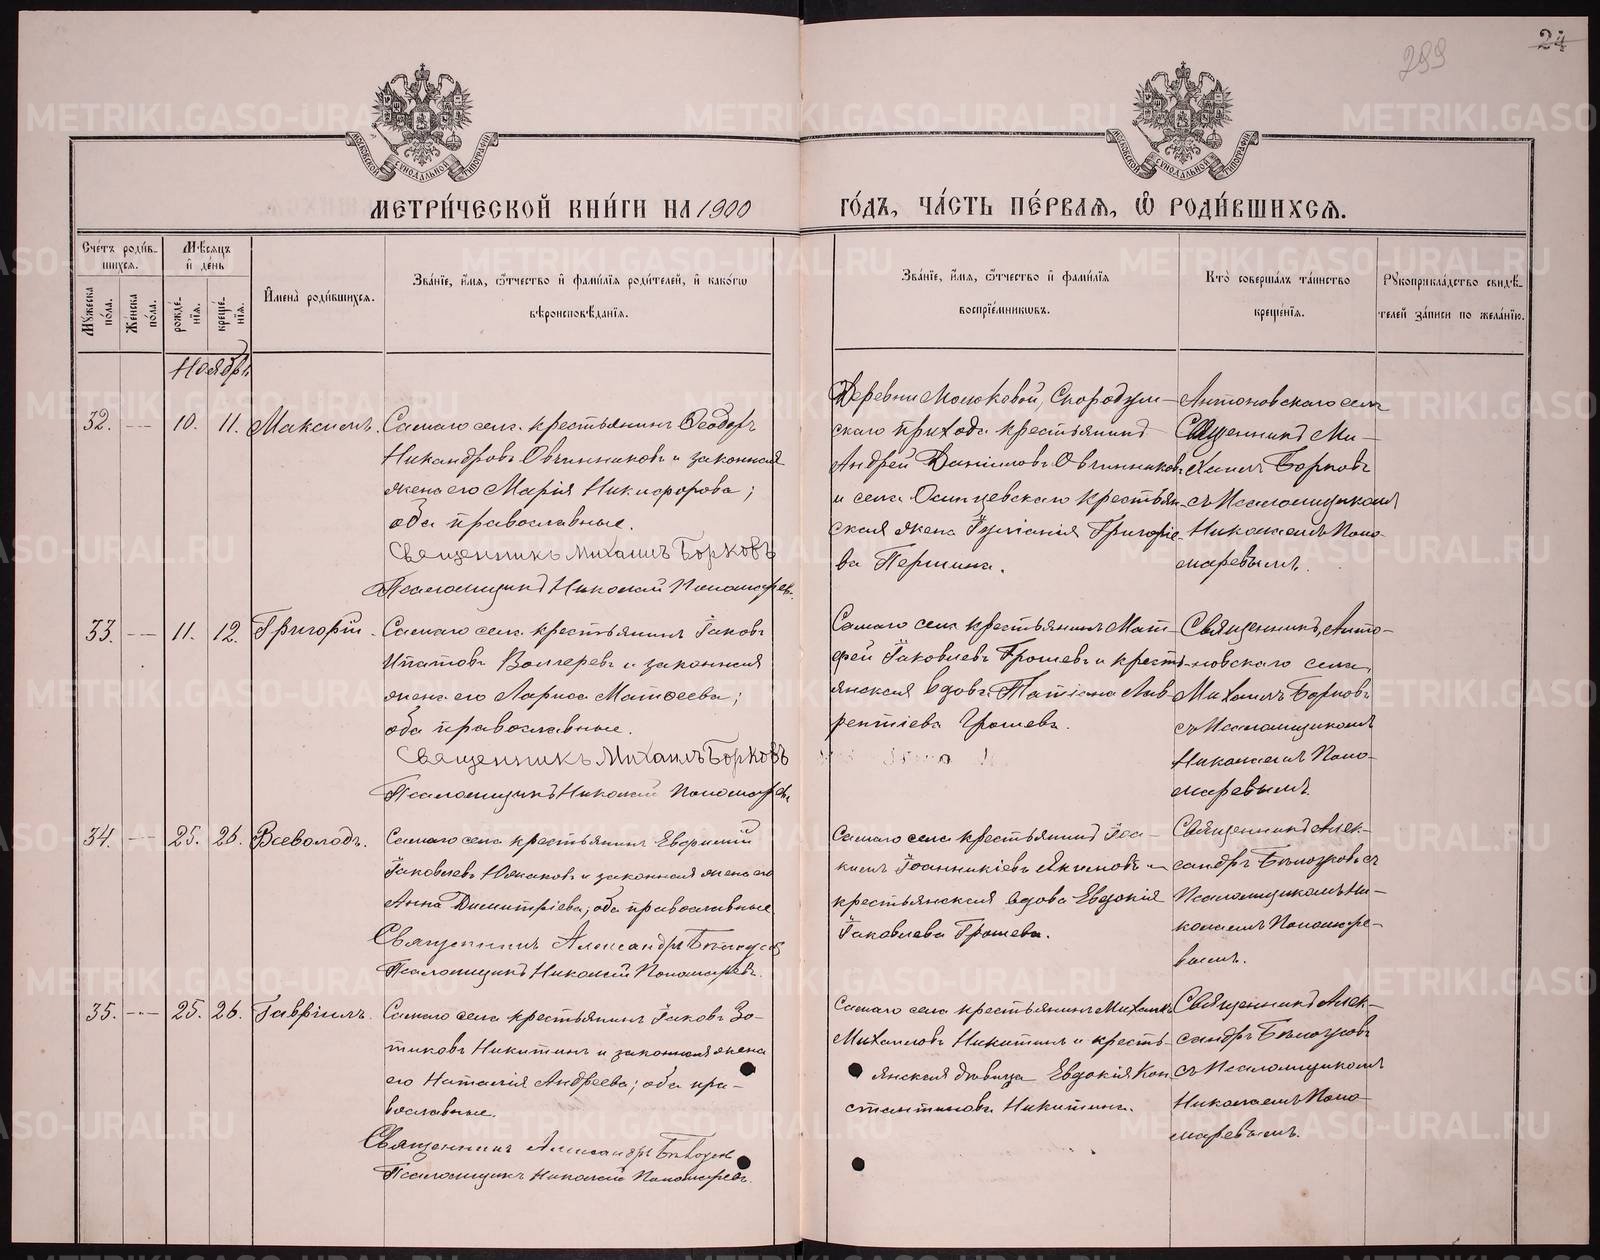 24
299
МЕТРИ́ЧЕСКОЙ КНИ́ГИ НА 1900
ГО́ДЪ, ЧА́СТЬ ПЕ́РВАѦ, Ѽ РОДИ́ВШИХСѦ.
Сче́тъ роди́в-
шихсѧ.
Мѣ́сѧцъ
и҆ де́нь
Мꙋ́жеска
по́ла.
Же́нска
по́ла.
рожде́-
нїѧ.
креще́-
нїѧ.
И҆мена̀ роди́вшихсѧ.
Зва́нїе, и҆́мѧ, ѻ҆́тчество и҆ фами́лїѧ роди́телей, и҆ како́гѡ
вѣроисповѣ́данїѧ.
Зва́нїе, и҆́мѧ, ѻ҆́тчество и҆ фами́лїѧ
воспрїе́мникѡвъ.
Кто̀ соверша́лъ та́инство
креще́нїѧ.
Рꙋкоприкла́дство свидѣ́-
телей за́писи по жела́нїю.
Ноябрь
32. — 10. 11. Максимъ.
Самаго села крестьянинъ Ѳеодоръ
Никандровъ Овчинниковъ и законная
жена его Марія Никифорова;
оба православные.
Священникъ Михаилъ Борковъ
Псаломщикъ Николай Пономаревъ.
Деревни
скаго прихода крестьянинъ
Андрей Даніиловъ Овчинниковъ
и села Осинцевскаго крестьян-
ская жена Іуліанія Григорье-
ва Першина.
Антоновскаго села
Священникъ Ми-
хаилъ Борковъ
съ Псаломщикомъ
Николаемъ Поно-
маревымъ.
33. — 11. 12. Григорій.
Самаго села крестьянинъ Іаковъ
Ипатовъ и законная
жена его Лариса Матѳеева;
оба православные.
Священникъ Михаилъ Борковъ
Псаломщикъ Николай Пономаревъ
Самаго села крестьянинъ Мат-
фей Іаковлевъ Грошевъ и кресть-
янская вдова Татіана Лав-
рентіева Грошева.
Священникъ Анто-
новскаго села
Михаилъ Борковъ
съ Псаломщикомъ
Николаемъ Поно-
маревымъ.
34. — 25. 26. Всеволодъ.
Самаго села крестьянинъ Евфимій
Іаковлевъ и законная жена его
Анна Димитріева; оба православные
Священникъ Александръ
Псаломщикъ Николай Пономаревъ.
Самаго села крестьянинъ Іоа-
кимъ Іоанникіевъ Якимовъ и
крестьянская вдова Евдокія
Іаковлева Грошева.
Священникъ Алек-
сандръ съ
Псаломщикомъ Ни-
колаемъ Пономаре-
вымъ.
35. — 25. 26. Гавріилъ.
Самаго села крестьянинъ Іаковъ Зо-
тиковъ Никитинъ и законная жена
его Наталія Андреева; оба пра-
вославные.
Священникъ Александръ
Псаломщикъ Николай Пономаревъ.
Самаго села крестьянинъ Михаилъ
Михаиловъ Никитинъ и кресть-
янская дѣвица Евдокія Кон-
стантинова Никитина.
Священникъ Алек-
сандръ
съ Псаломщикомъ
Николаемъ Поно-
маревымъ.
METRIKI.GASO-URAL.RU